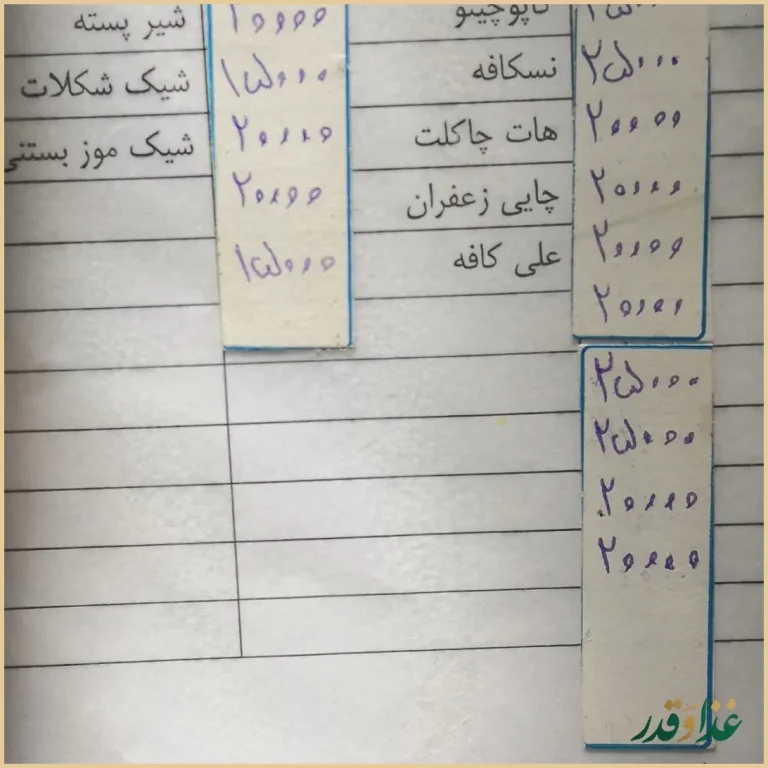 کاپوچینو ۱۰۰۰۰ شیر پسته
۲۵۰۰۰ نسکافه ۱۵۰۰۰ شیک شکلات
۲۰۰۰۰ هات چاکلت ۲۰۰۰۰ شیک موز بستنی
۲۰۰۰۰ چایی زعفران ۲۰۰۰۰
۲۰۰۰۰ علی کافه ۱۵۰۰۰
۲۰۰۰۰
۲۵۰۰۰
۲۰۰۰۰
۲۰۰۰۰
غذا و قدر